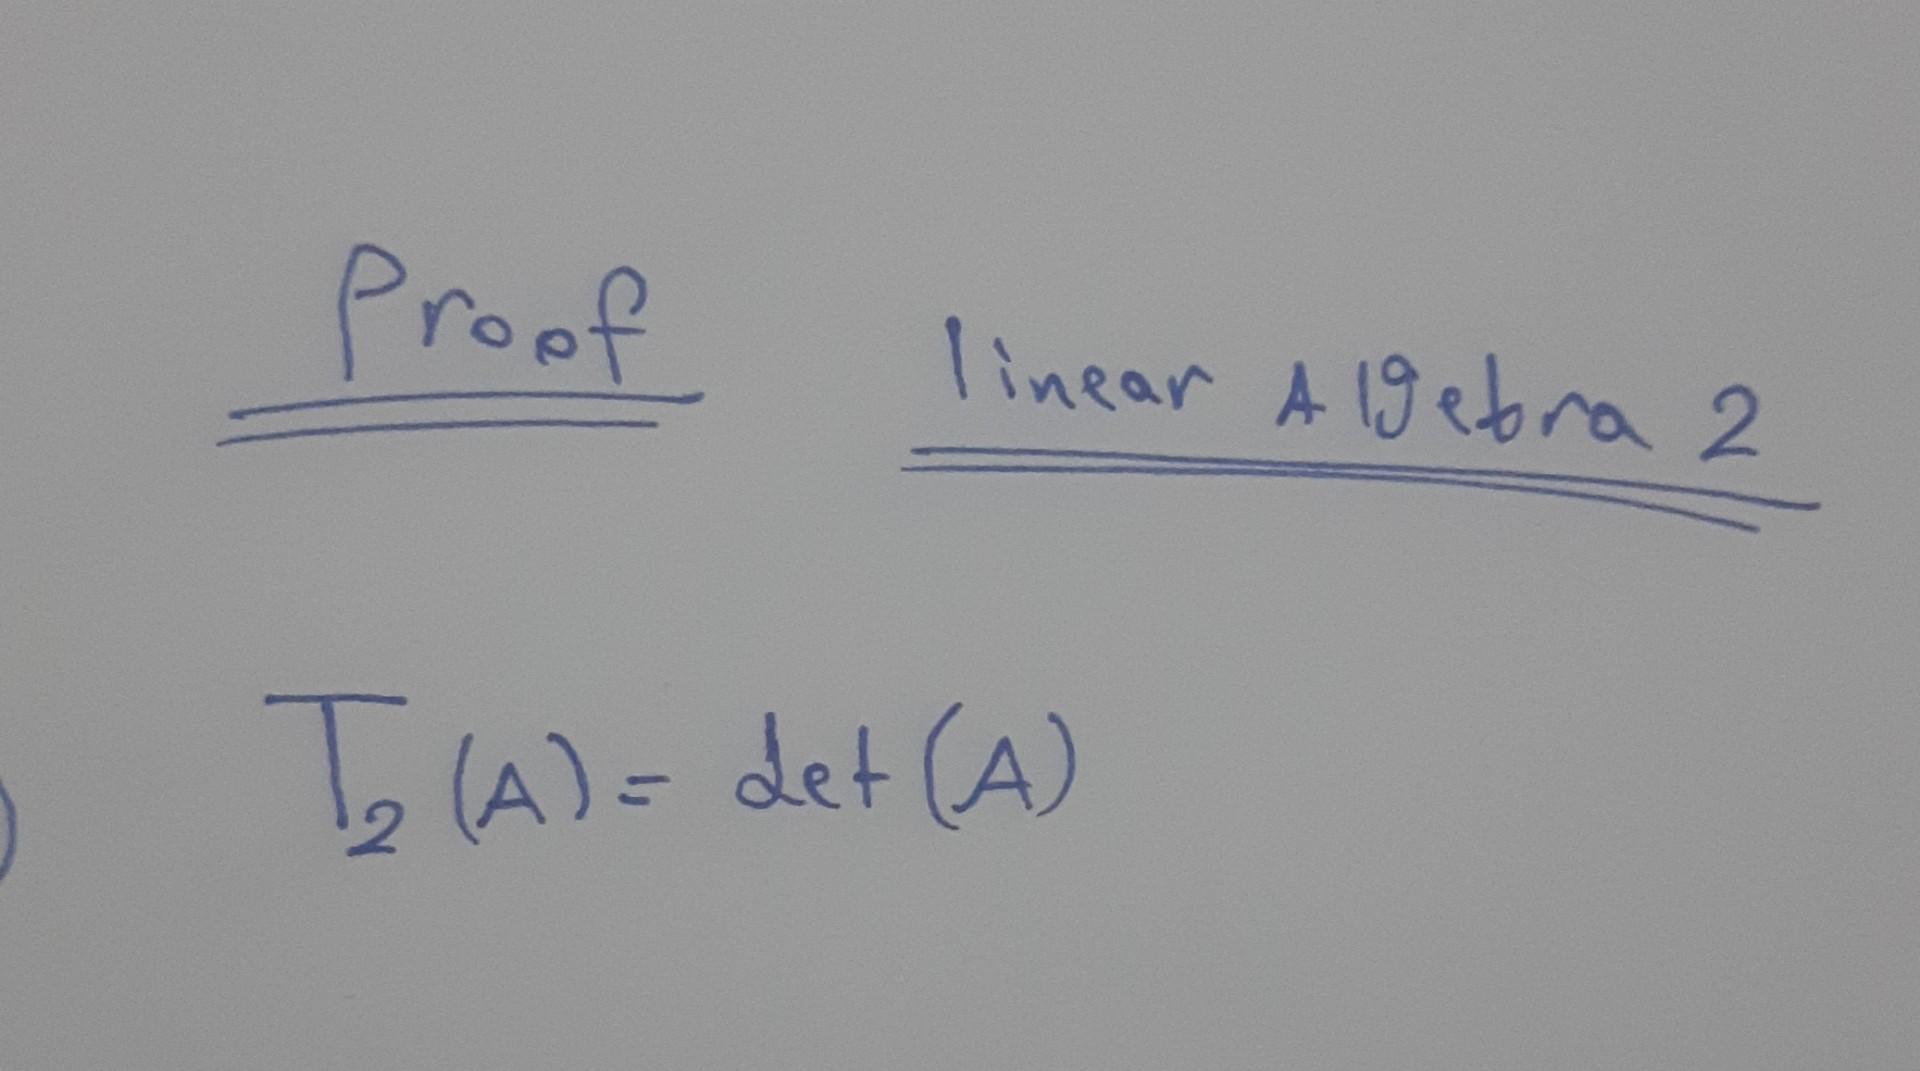 Proof
linear Algebra 2
T₂ (A) = det (A)